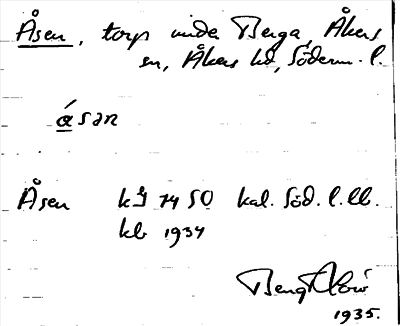 Åsen, torp under Berga, Åkers
sn, Åkers hd, Söderm. l.
åsən
Åsen kJ 74 SO kal. Söd. l. lb.
kb 1934
1935.